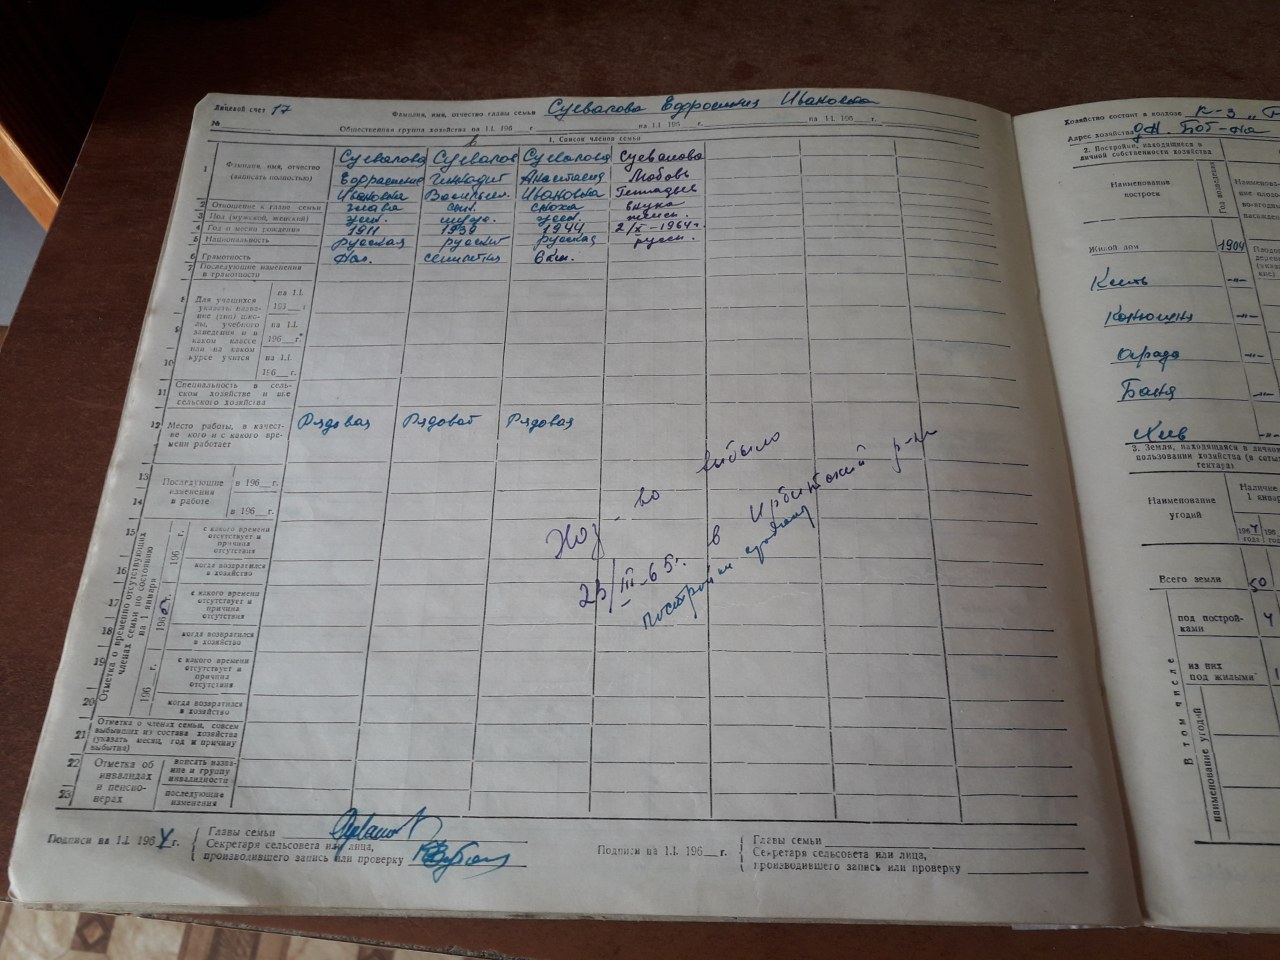 Лицевой счет 17
№
Фамилия, имя, отчество главы семьи Суевалова Ефросиния Ивановна
Общественная группа хозяйства на 1.I. 196 г. на 1.I. 196 г. на 1.I. 196 г.
1. Список членов семьи
1 Фамилия, имя, отчество (записать полностью)
Суевалова Суевалов Суевалова Суевалова
Ефросиния Геннадий Анастасия Любовь
Ивановна Васильев. Ивановна Геннадьев
2 Отношение к главе семьи глава сын. сноха внука
3 Пол (мужской, женский) жен. жен.
4 Год и месяц рождения 1911 1936 1944 2/X-1964г.
5 Национальность русская русский русская русск.
6 Грамотность семилетка 6 кл.
7 Последующие изменения в грамотности
8 Для учащихся указать: название (тип) школы, учебного заведения и в каком классе или на каком курсе учится
на 1.I. 196 г.
9 на 1.I. 196 г.
10 на 1.I. 196 г.
11 Специальность в сельском хозяйстве и вне сельского хозяйства
12 Место работы, в качестве кого и с какого времени работает Рядовая Рядовой Рядовая
13 Последующие изменения в работе в 196 г.
14 в 196 г.
Хоз-во выбыло
23/III-65г. в Ирбитский р-н
постройки проданы
Отметка о временно отсутствующих членах семьи по состоянию на 1 января
15 196 г. с какого времени отсутствует и причина отсутствия
16 когда возвратился в хозяйство
17 196 г. с какого времени отсутствует и причина отсутствия
18 когда возвратился в хозяйство
19 196 г. с какого времени отсутствует и причина отсутствия
20 когда возвратился в хозяйство
21 Отметка о членах семьи, совсем выбывших из состава хозяйства (указать месяц, год и причину выбытия)
22 Отметка об инвалидах и пенсионерах вписать название и группу инвалидности
23 последующие изменения
Подписи на 1.I. 1964 г.
Главы семьи
Секретаря сельсовета или лица,
производившего запись или проверку
Подписи на 1.I. 196 г.
Главы семьи
Секретаря сельсовета или лица,
производившего запись или проверку
Хозяйство состоит в колхозе к-з
Адрес хозяйства
2. Постройки, находящиеся в
личной собственности хозяйства
Наименование
построек
Год возведения
Жилой дом 1904
Клеть -"-
Конюшня -"-
Ограда -"-
Баня -"-
Хлев -"-
3. Земли, находящиеся в личном
пользовании хозяйства (в сотых
гектара)
Наименование
угодий
Наличие
1 январ
1964 года
Всего земли 50
В том числе
наименование угодий
под постройками 4
из них
под жилыми